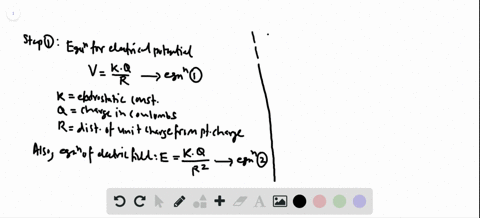 Step ①: Eqnⁿ for electrical potential
V = K.Q/R → eqnⁿ ①
K = electrostatic const.
Q = charge in coulombs
R = dist. of unit charge from pt. charge
Also, eqnⁿ of electric field: E = K.Q/R² → eqnⁿ ②